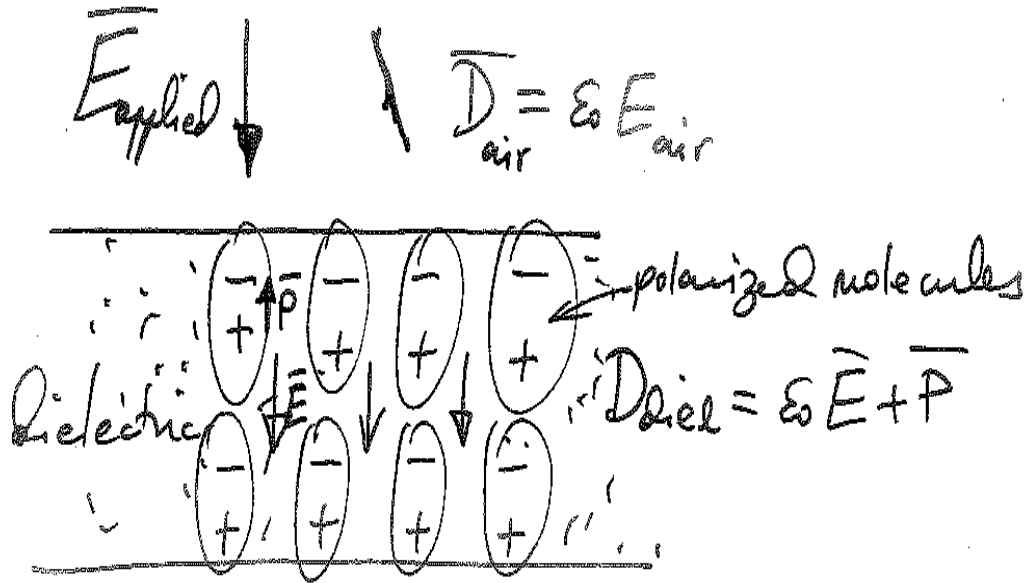 E̅applied D̅air = ε₀ Eair
− − − −
P̅
+ + + +
polarized molecules
Dielectric E̅ Ddiel = ε₀ E̅ + P̅
− − − −
+ + + +